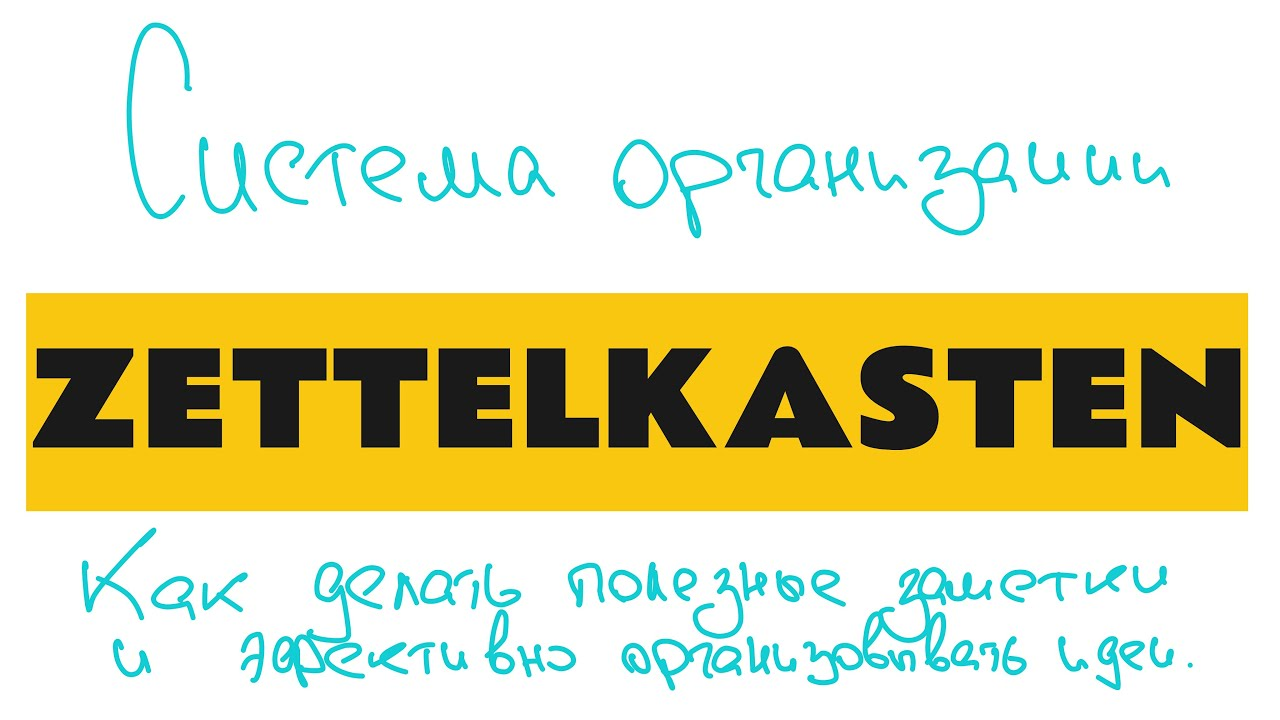 Система организации
ZETTELKASTEN
Как делать полезные заметки
и эффективно организовывать идеи.